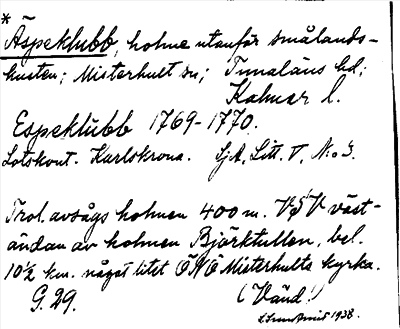 *
Äspeklubb, holme utanför Smålands-
kusten; Misterhult sn; Tunaläns hd;
Kalmar l.
Espeklubb 1769-1770.
Lotskont. Karlskrona. SjA, Litt. V, No 3.
Trol. avsågs holmen 400 m. VSV väst-
ändan av holmen Björktullen, bel.
10½ km. något litet ÖNÖ Misterhults kyrka.
G. 29. (Vänd!)
1938.